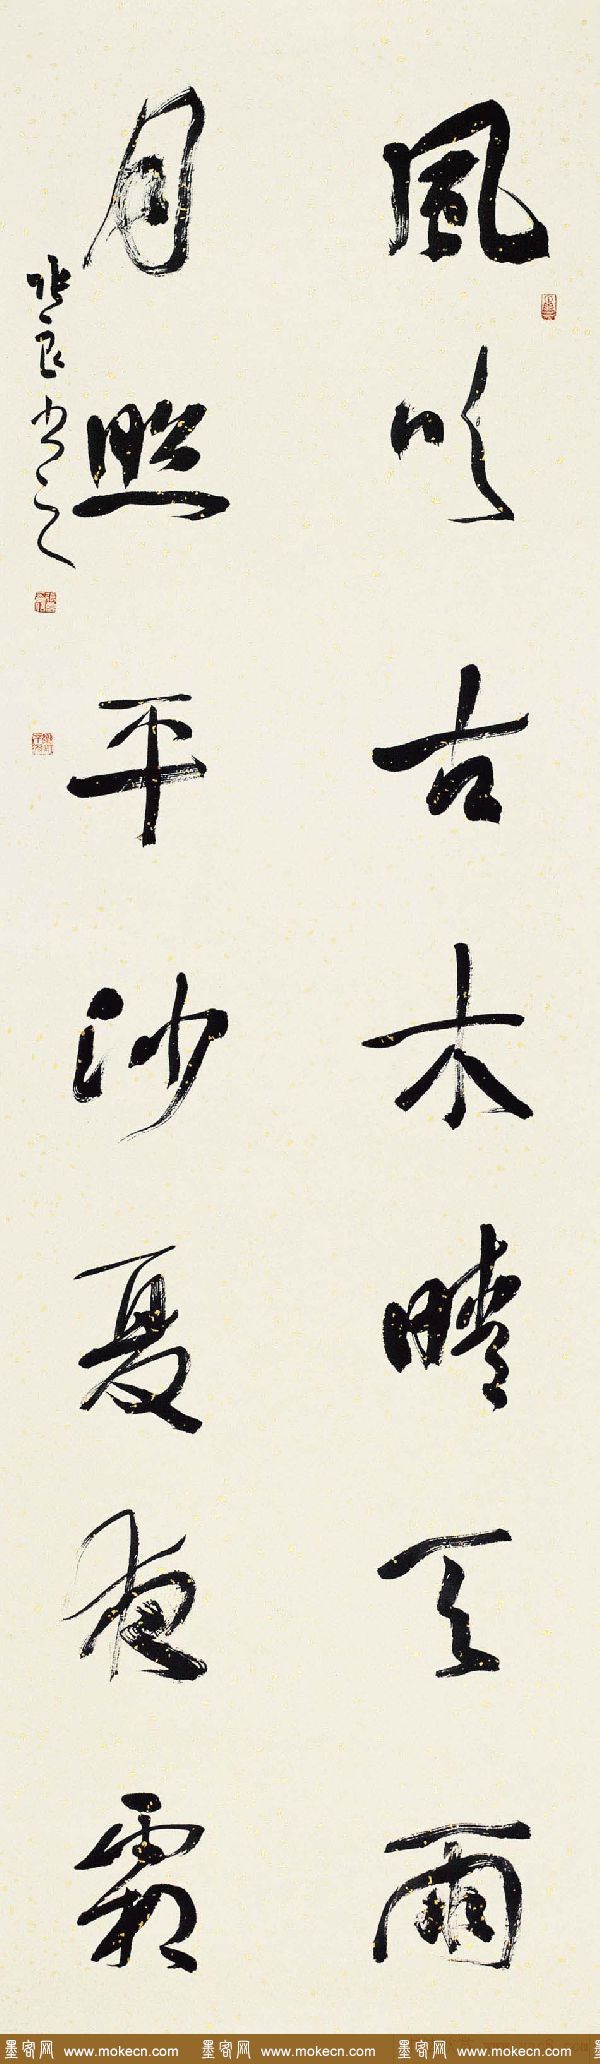 風吹古木晴天雨
月照平沙夏夜霜
張良書之
墨客网 www.mokecn.com 墨客网 www.mokecn.com 墨客网 www.mokecn.com 墨